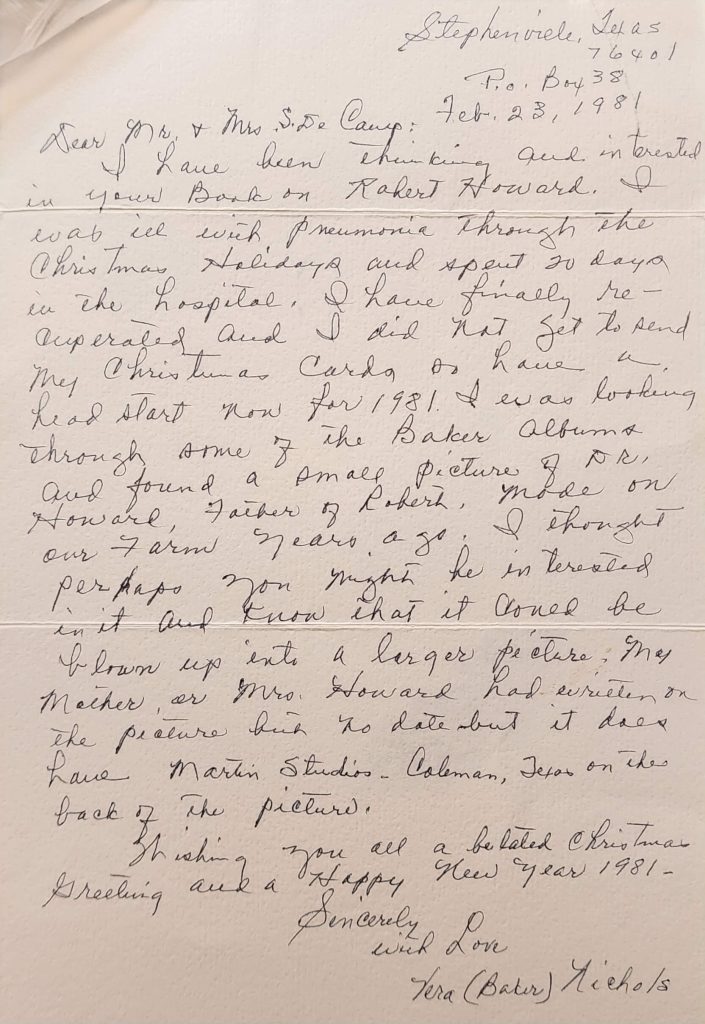 Stephenville, Texas
76401
P.O. Box 38
Feb. 23, 1981
Dear Mr. & Mrs. S. De Camp:
I have been thinking and interested
in your Book on Robert Howard. I
was ill with pneumonia through the
Christmas Holidays and spent 20 days
in the hospital. I have finally re-
cuperated and I did not get to send
My Christmas Cards so have a
head start now for 1981. I was looking
through some of the Baker Albums
and found a small picture of DR.
Howard, Father of Robert, made on
our Farm Years ago. I thought
perhaps you might be interested
in it and know that it could be
blown up into a larger picture. My
Mother, or Mrs. Howard had written on
the picture but no date but it does
have Martin Studios - Coleman, Texas on the
back of the picture.
Wishing you all a belated Christmas
Greeting and a Happy New Year 1981-
Sincerely
with Love
Vera (Baker) Nichols